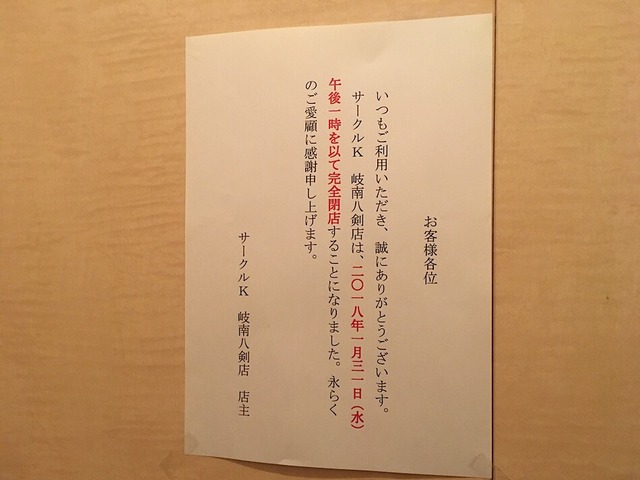 お客様各位
いつもご利用いただき、誠にありがとうございます。
サークルK　岐南八剣店は、二〇一八年一月三一日（水）
午後一時を以て完全閉店することになりました。永らく
のご愛顧に感謝申し上げます。
サークルK　岐南八剣店　店主